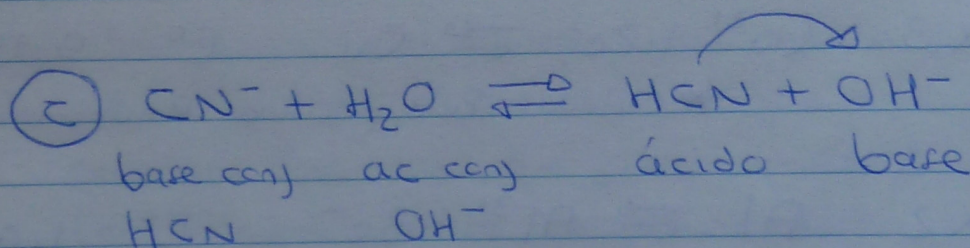 c CN⁻ + H₂O ⇌ HCN + OH⁻
base conj ac conj ácido base
HCN OH⁻